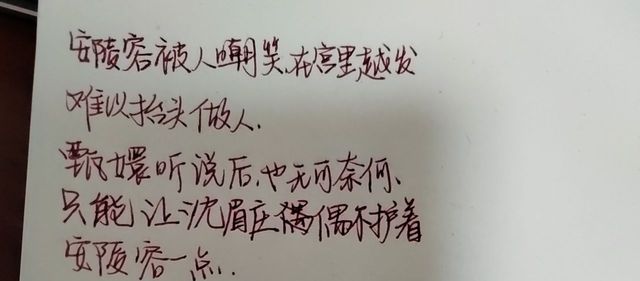 安陵容被人嘲笑,在宫里越发
难以抬头做人.
甄嬛听说后,也无可奈何、
只能让沈眉庄偶偶尔护着
安陵容一点.